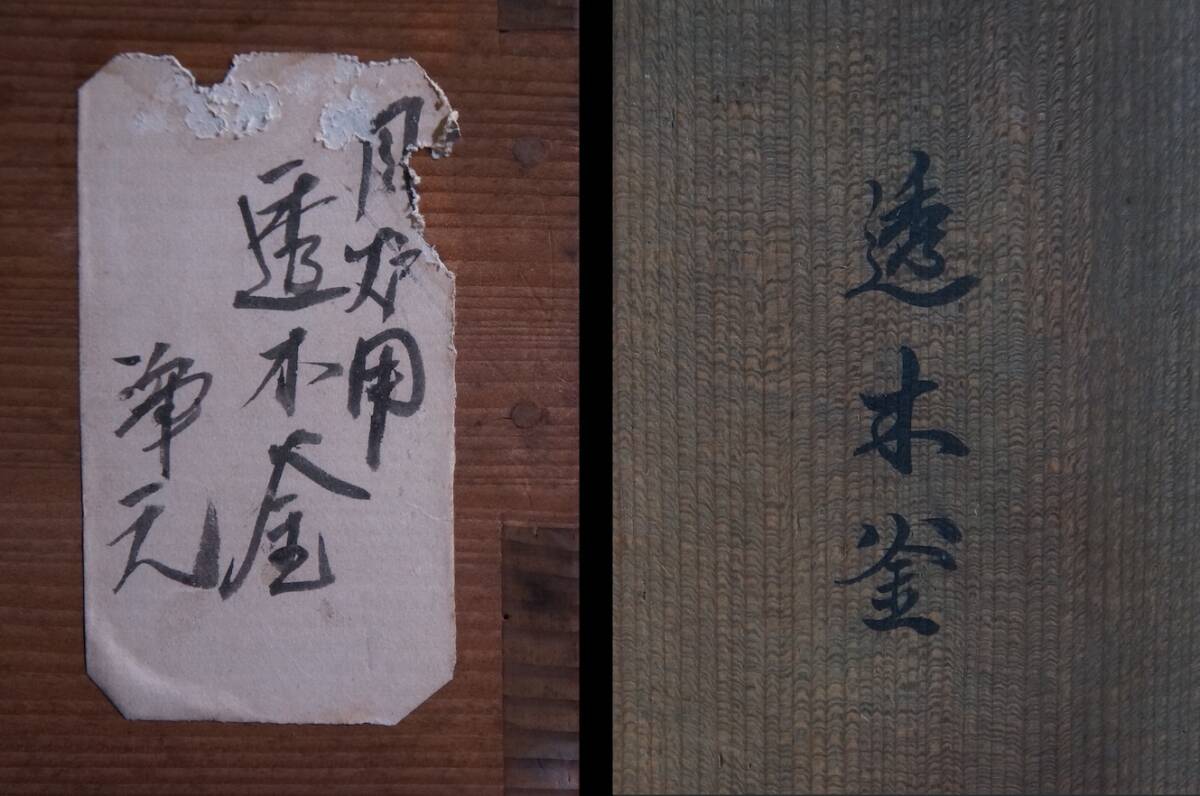 風炉用
透木釜
浄元
透木釜